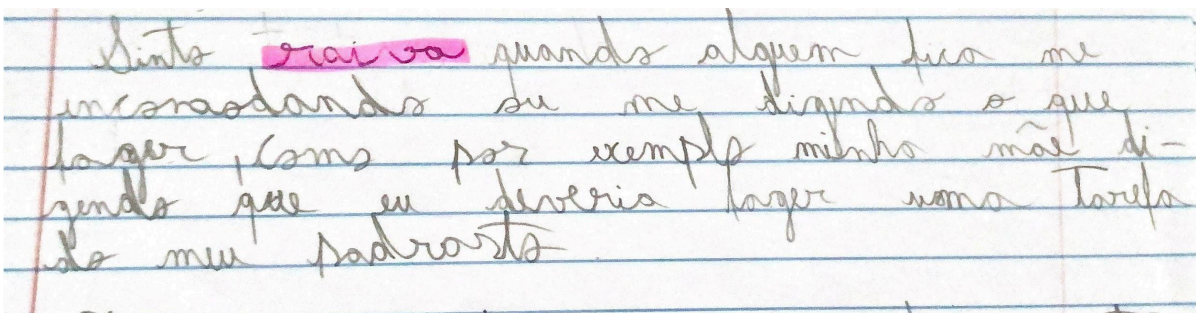 Sinto raiva quando alguem fica me
incomodando ou me dizendo o que
fazer, como por exemplo minha mãe di-
zendo que eu deveria fazer uma tarefa
do meu padrasto